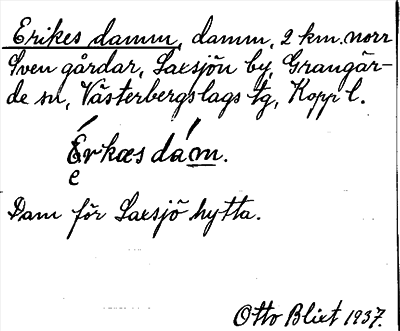 Erikes damm, damm, 2 km. norr
Sven gårdar, Saxsjön by, Grangär-
de sn, Västerbergslags tg, Kopp l.
Érkæs dám.
e
Dam för Saxsjö hytta.
Otto Blixt 1937.